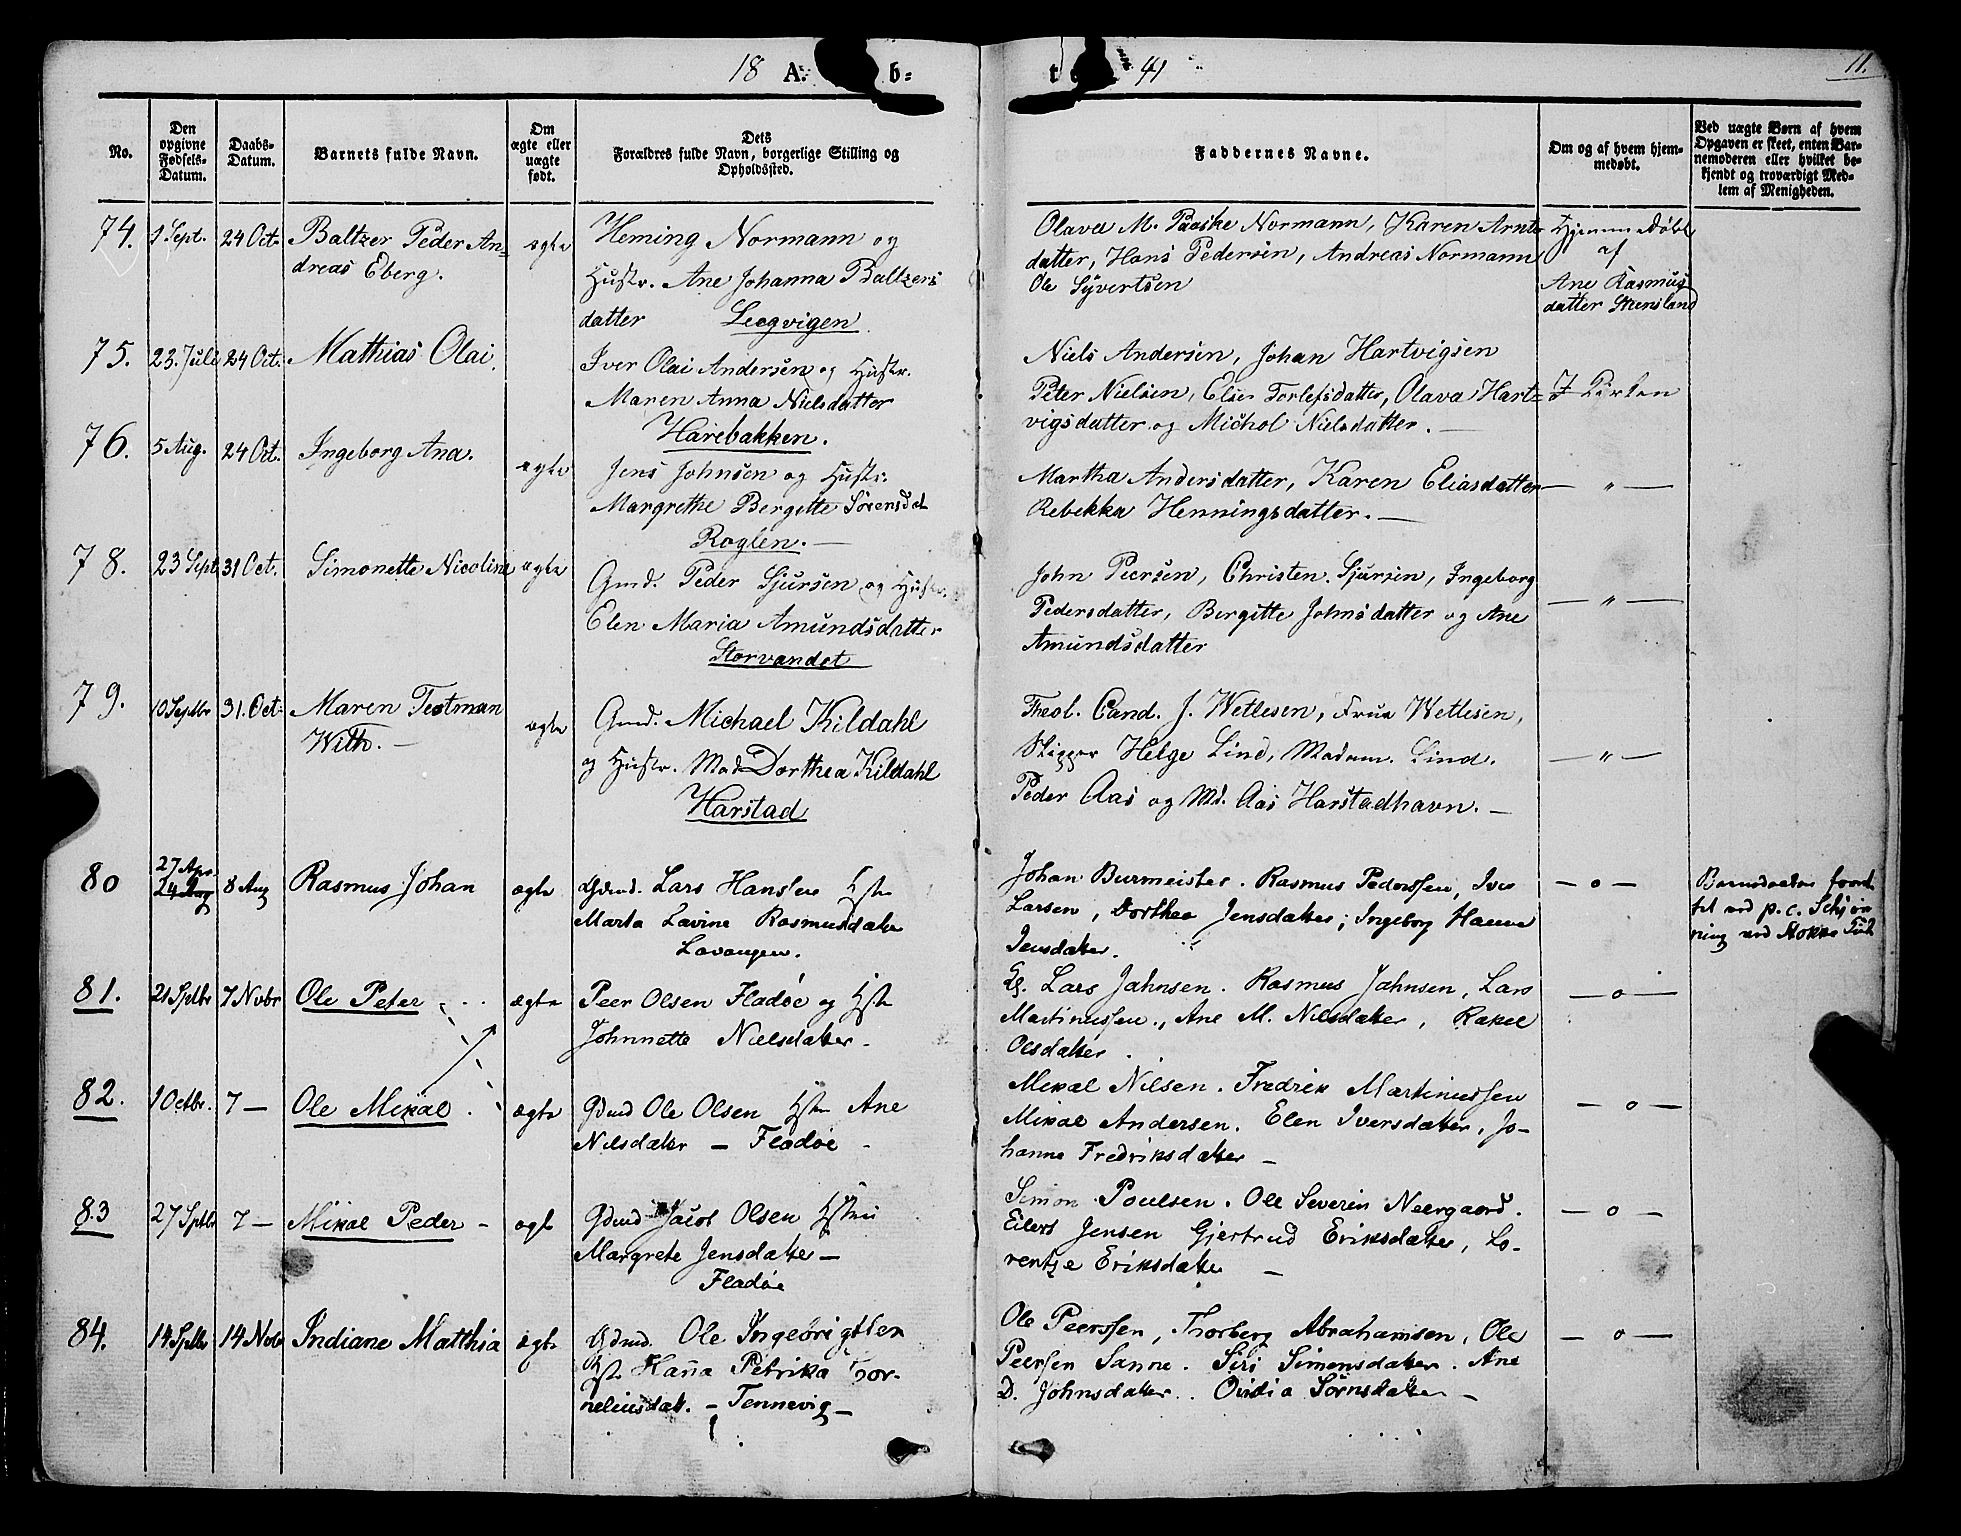 18 A. b:
t 41
11.
No.
Den opgivne Fødsels-Datum.
Daabs-Datum.
Barnets fulde Navn.
Om ægte eller uægte født.
Dets Forældres fulde Navn, borgerlige Stilling og Opholdssted.
Faddernes Navne.
Om og af hvem hjemmedøbt.
Ved uægte Børn af hvem Opgaven er skeet, enten Barnemoderen eller hvilket bekjendt og troværdigt Medlem af Menigheden.
74. 1 Sept. 24 Oct. Baltzer Peder An-
dreas Eberg.
ægte
Heming Normann og
Hustr. Ane Johanna Baltzers
datter Leogvigen
Olava M. Paaske Normann, Karen Arnts
datter, Hans Pedersen, Andreas Normann
Ole Syvertsen
Hjemmedøbt
af
Ane Rasmus
datter Grensland
75. 23. Juli 24 Oct. Mathias Olai.
Iver Olai Andersen og Hustr.
Maren Anna Nielsdatter
Harebakken.
Niels Andersen, Johan Hartvigsen
Peter Nielsen, Elsen Torlefsdatter, Olava Hart-
vigsdatter og Michol Nielsdatter. —
I Kirken
76. 5 Aug. 24 Oct. Ingeborg Ana.
ægte
Jens Johnsen og Hustr.
Margrethe Bergitte Sörensdat
Roglen. —
Martha Andersdatter, Karen Eliasdatter
Rebekka Henningsdatter. —
— " —
78. 23 Sept. 31 Oct. Simonette Nicoline ægte
Gmd. Peder Sjursen og Hustr.
Elen Maria Amundsdatter
Storvandet
John Peersen, Christen Sjursen, Ingeborg
Pedersdatter, Bergitte Johnsdatter og Ane
Amundsdatter
— " —
79. 10 Septbr 31. Oct. Maren Testman
With. —
ægte
Gmd. Michael Kildahl
og Hustr. Mad Dorthea Kildahl
Harstad
Theol. Cand. J. Wetlesen, Frue Wetlesen,
Skipper Helge Lind, Madam. Lind.
Peder Aas og Md. Aas Harstadhavn. —
— " —
80 27 Apr. 24 Aug 8 Aug Rasmus Johan ægte
Gdmd. Lars Hanssen Hstr
Marta Lavine Rasmusdater
Lavangen.
Johan Burmeister. Rasmus Pederssen, Iver
Larsen, Dorthea Jensdatter; Ingeborg Hanna
Jensdater.
— o —
Barnedaaben forret
tet ved p. c. Schjøn
ning ved
81. 21 Septbr 7 Novbr Ole Peter ægte
Peer Olsen Fladøe og Hstr
Johnnette Nielsdatter.
Lars Jahnsen. Rasmus Jahnsen, Lars
Martinussen., Ane M. Nilsdatter, Rakel
Olsdatter.
— o —
82. 1 Octbr. 7 — Ole Mikal. ægte
Gdmd Ole Olsen Hstr Ane
Nilsdatter — Fladøe
Mikal Nilsen. Fredrik Martinussen
Mikal Andersen. Elen Iversdatter, Jo-
hanne Fredriksdatter —
— o —
83 27 Septbr 7 — Mikal Peder — ægt
Gdmd Jacob Olsen Hstru
Margrete Jensdatter —
Fladøe
Simon Poulsen. Ole Severin Neergaard.
Eilert Jensen Gjertrud Eriksdatter, Lo-
rentze Eriksdatter —
— o —
84. 14 Septbr 14 Novbr Indiane Matthia ægte
Gdmd. Ole Ingebrigtsen
Hst. Hanna Petrika Cor-
neliusdatt. — Tennevig —
Ole Peerssen, Thorberg Abrahamsen, Ole
Peersen Sanne. Siri Simonsdatter. Ane
D. Johnsdatter. Ovidia Sørnsdatter —
— o —